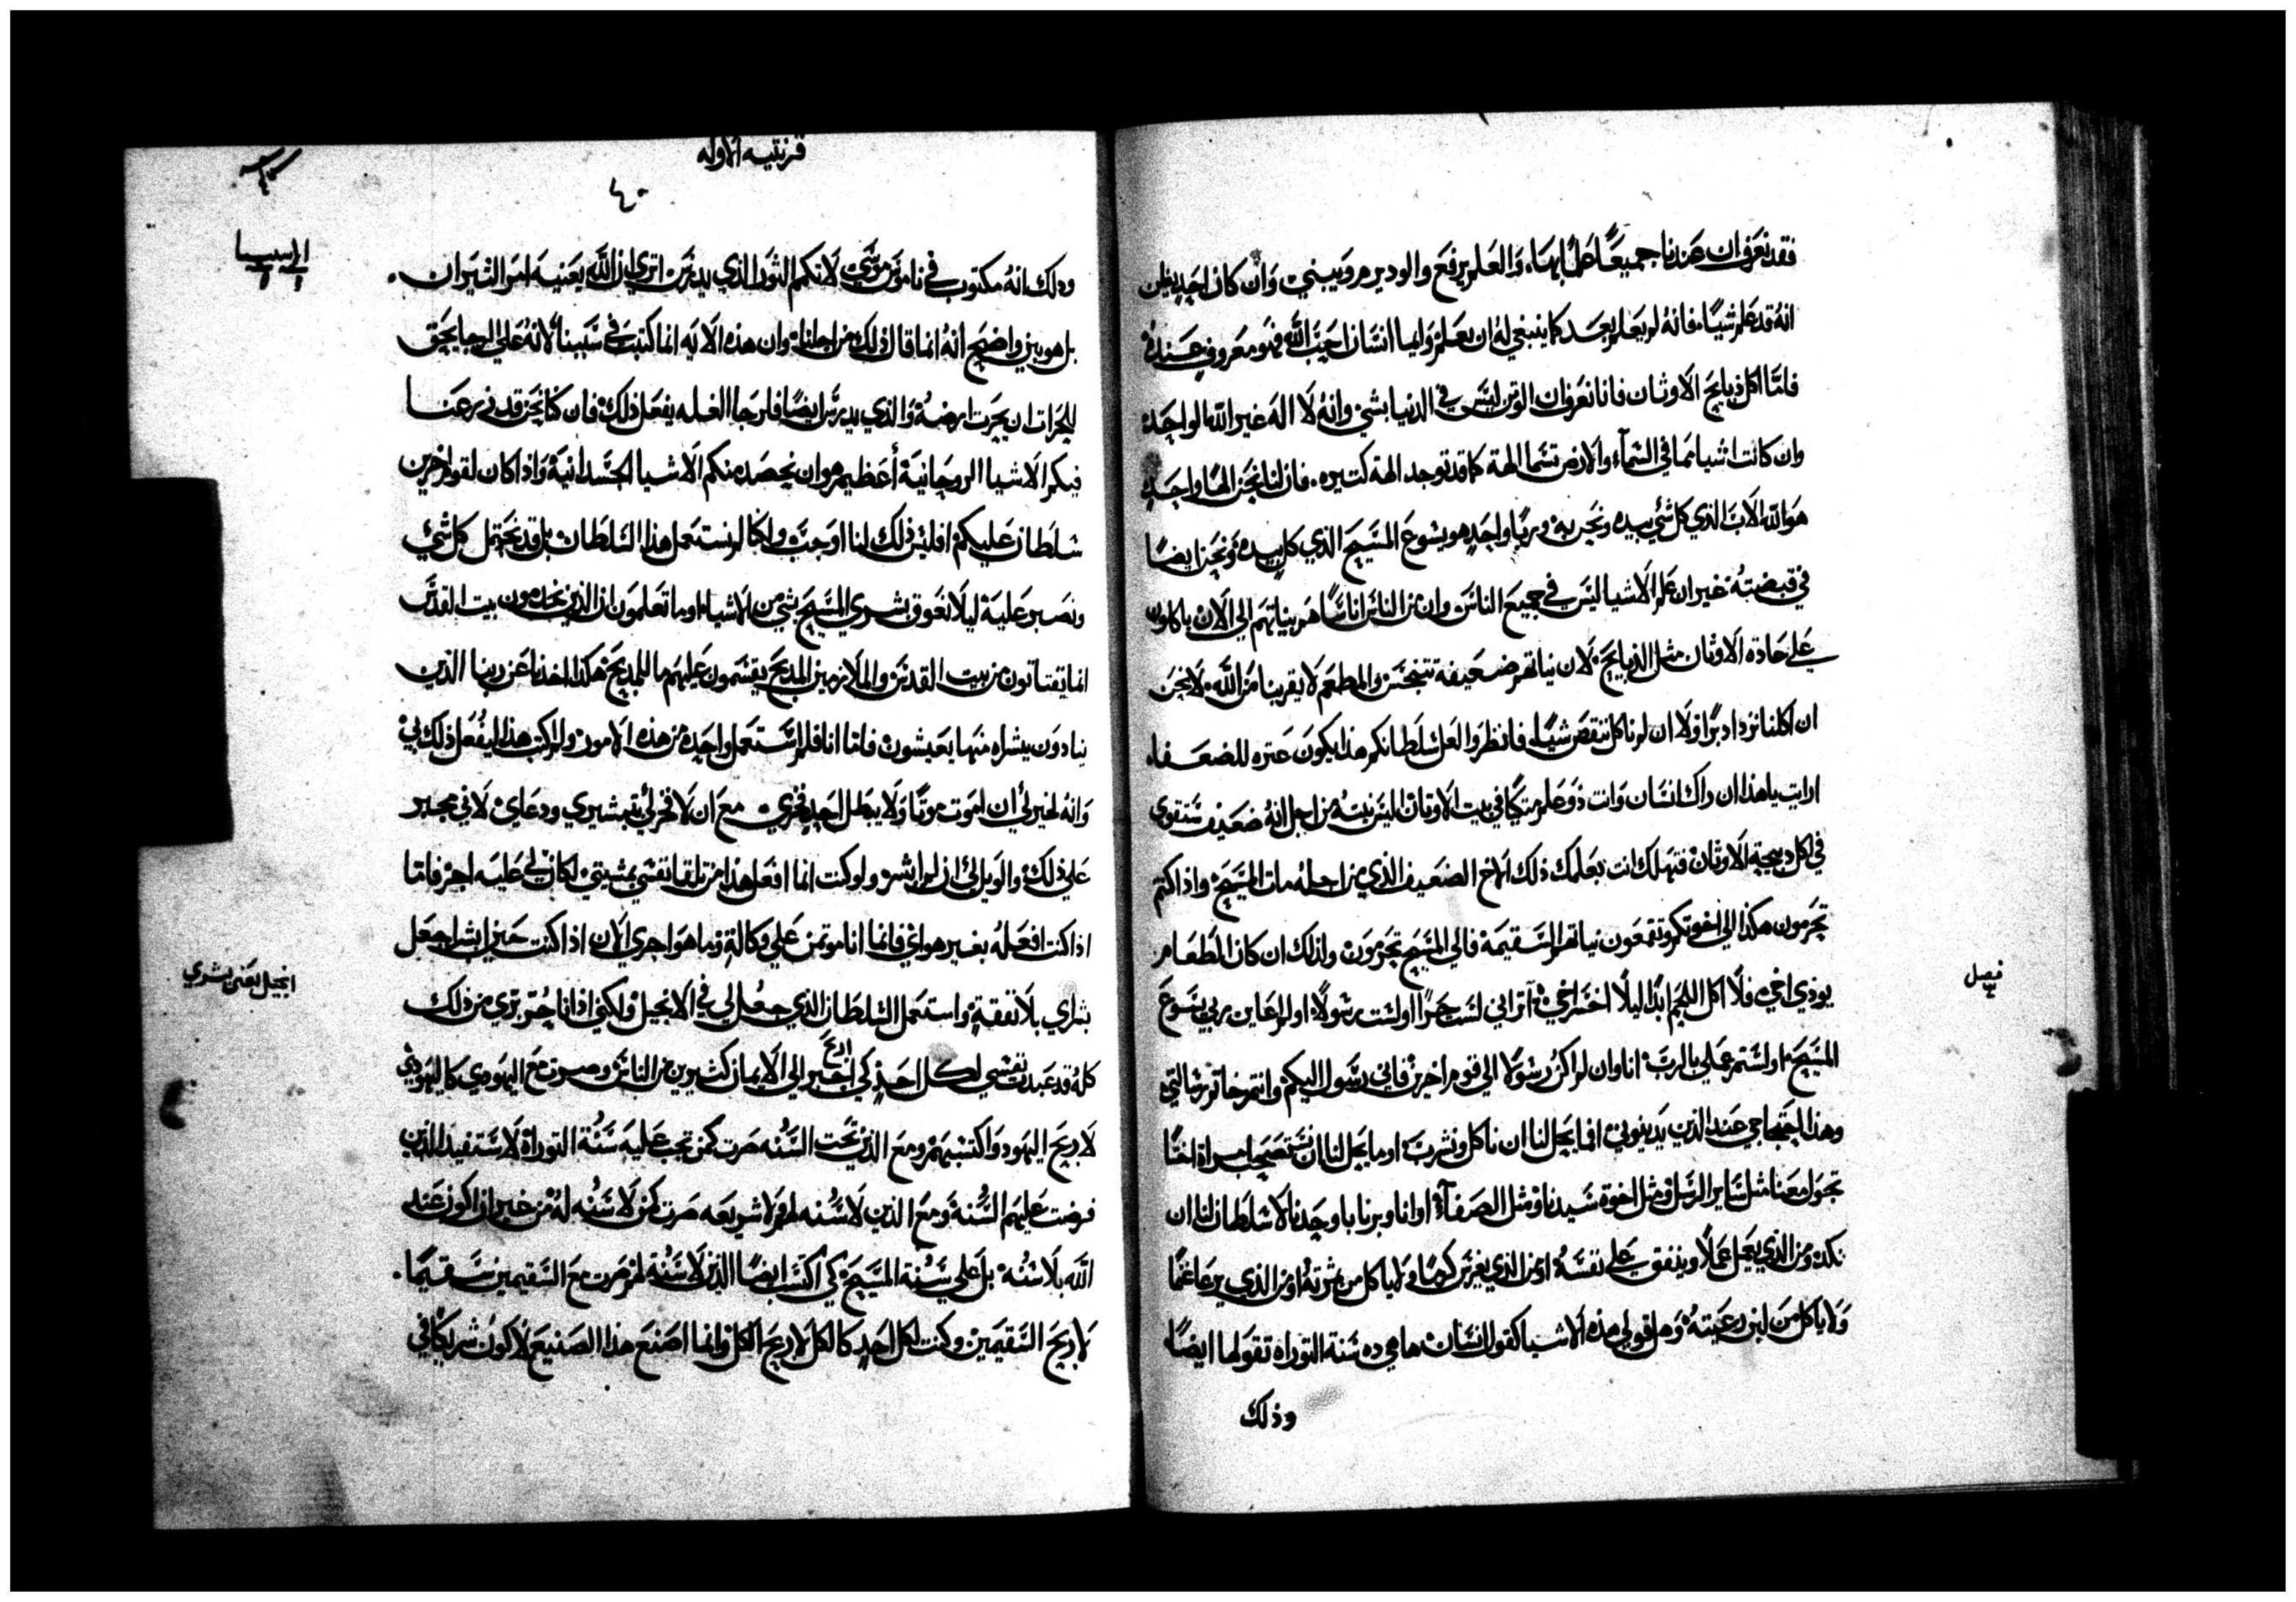 فقد نعرف ان عندنا جميعًا علمًا بهاء والعلم يرفع والود يرم ويبني وان كان احد يظن
انه قد علم شياء فانه لم يعلم بعد كما ينبغي له ان يعلم وايما انسان احب الله فهو معروف عنده
فاما اكل ذبايح الاوثان فانا نعرف ان الوثن ليس في الدنيا بشي وانه لا اله غير الله الواحد
وان كانت اشيا مما في السماء والارض تسما الهة كما قد توجد الهة كتيره فان لنا نحن الهًا واحد
هو الله الاب الذي كل شي بيده ونحن به وربًا واحد هو يشوع المسيح الذي كل بيده ونحن ايضا
في قبضته غير ان علم الاشيا ليس في جميع الناس وان من الناس اناسًا هم بنياتهم الي الان ياكلون
علي عادة الاوثان مثل الذبايح لان نياتهم ضعيفة تتنجس والمطعم لا يقربنا من الله لا نحن
ان اكلنا نزداد برًا ولا ان لم ناكل ننقص شياء فانظروا لعل سلطانكم هذا يكون عتره للضعفاء
ارايت يا هذا ان راك انسان وانت ذو علم متكيا في بيت الاوتان اليس نيته من اجل انه ضعيف ستقوي
في اكل دبيحة الاوثان فتهلك انت بعلمك ذلك الاخ الضعيف الذي من اجله مات المسيح واذا كنتم
تجرمون هكذا الي اخوتكم وتقمعون نياتهم السقيمة فالي المسيح تجرمون ولذلك ان كان الطعام
فصل
يوذي اخي فلا اكل اللحم ابدًا ليلا اخسر اخي اتراني لست حرًا اولست رسولًا اولم اعاين ربي يسوع
المسيح اولستم عملي بالرب انا وان لم اكن رسولًا الي قوم اخرين فاني رسول اليكم وانتم خاتم رسالتي
وهذا احتجاجي عند الذين يدينوني افما يحل لنا ان ناكل ونشرب اوما يحل لنا ان نستصحب امراة اختًا
تجول معنا مثل ساير الرسل ومثل اخوة سيدنا ومثل الصفاء اوانا وبرنابا وحدنا لا سلطان لنا ان
نكد ومن الذي يعمل عملًا وينفق علي نفسه او من الذي يغرس كرمًا ولا ياكل من ثمرته او من الذي يرعا غنمًا
ولا ياكل من لبن رعيته وهل قولي هذه الاشيا كقول انسان ها هي ده سنة التوراه تقولها ايضًا
وذلك
قرنتيه الاوله
٤٠
وذلك انه مكتوب في ناموس موسي لا تكم الثور الذي يدرس اتري ان الله يعنيه امر الثيران
بل هو بين واضح انه انما قال ذلك من اجلنا وان هذه الايه انما كتبت في سببنا لانه علي الرجا يحق
للحرات ان يحرت ارضه والذي يدرس ايضًا فلرجا الغله يفعل ذلك فان كنا نحن قد زرعنا
فيكم الاشيا الروحانية أعظيم هو ان نحصد منكم الاشيا الجسدانية واذا كان لقوم اخرين
سلطان عليكم افليس ذلك لنا اوجب ولكنا لم نستعمل هذا السلطان بل قد نحتمل كل شي
ونصبر عليه ليلا نعوق بشري المسيح بشي من الاشياء اوما تعلمون ان الذين يخدمون بيت القدس
انما يقتاتون من بيت القدس والملازمين المدبح يقسمون عليهم ما للمدبح هكذا اخذنا عن ربنا الذين
ينادون بشراه منها يعيشون فاما انا فلم استعمل واحدة من هذه الامور ولم اكتب هذا ليفعل ذلك بي
وانه لخير لي ان اموت موتًا ولا يبطل احد فخري مع ان لا فخر لي بتبشيري ودعاي لاني مجبر
علي ذلك والويل لي ان لم ابشر ولو كنت انما افعل هذا من تلقا نفسي بمشيتي لكان لي عليه اجر فاما
اذا كنت افعله بغير هواي فانما انا موتمن علي وكالة وما هو اجري الان اذا كنت حين ابشر اجعل
انجيل يعني بشري
بشراي بلا نفقة واستعمل السلطان الذي جعل لي في الانجيل ولكني اذ انا حر بري من ذلك
كله قد عبدت نفسي لكل احد كي اجبر الي الايمان كثيرين من الناس وصرت مع اليهودي كاليهودي
لاربح اليهود واكتسبهم ومع الذين تحت السنه صرت كمن تجب عليه سنة التوراة لاستفيد الذين
فرضت عليهم السنة ومع الذين لا سنه لهم ولا شريعه صرت كمن لا سنه له من غير ان اكون عند
الله بلا سنه بل علي سنة المسيح كي اكتسب ايضًا الذين لا سنة لهم صرت مع السقيمين سقيمًا
لاربح السقيمين وكنت لكل احد كالكل لاربح الكل وانما اصنع هذا الصنيع لاكون شريكًا في